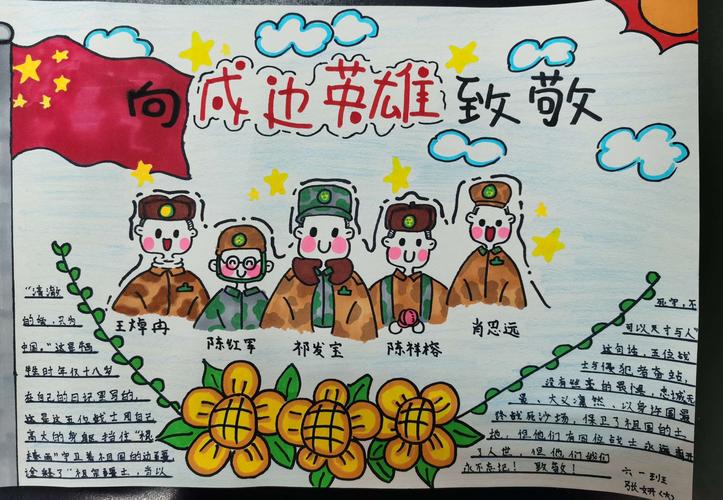 向戍边英雄致敬
王焯冉
陈红军
祁发宝
陈祥榕
肖思远
"清澈
的爱，只为
中国。"这是牺
牲时年仅十八岁
在自己的日记里写的，
这是这五位战士用自己
高大的身躯挡住"狼
卫着祖国的边疆
诠释了"祖国疆土，当以
死守，不
可以尺寸与人"
这句话，五位战
士与侵犯者奋站，
没有丝毫的畏惧，忠诚无
畏、大义凛然、以身许国最
终战死沙场，保卫了祖国的土
地，但他们有四位战士永远离开
了人世，但他们我们
永不忘记！致敬！
六一班
张妍